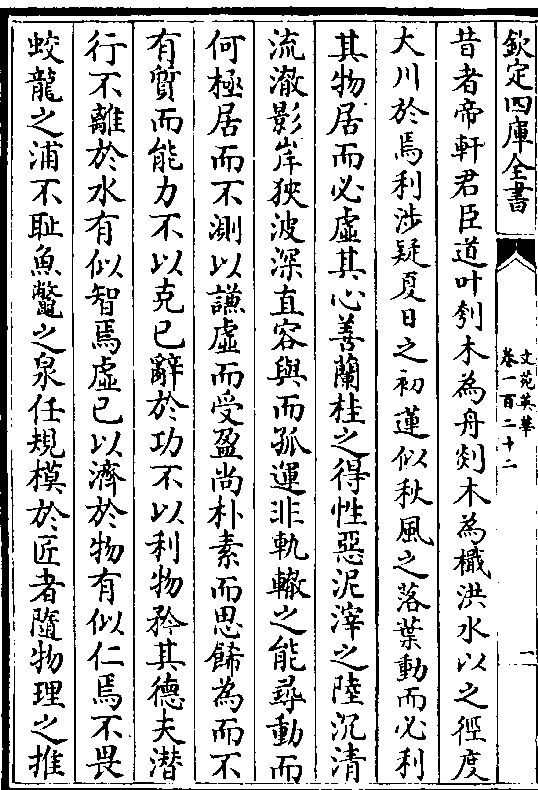 欽定四庫全書
文苑英華
卷一百二十二
二
昔者帝軒君臣道叶刳木為舟剡木為檝洪水以之徑度
大川於焉利涉疑夏日之初蓮似秋風之落葉動而必利
其物居而必虛其心善蘭桂之得性惡泥滓之陸沉清
流澈影岸狹波深直容與而孤運非軌轍之能尋動而
何極居而不測以謙虛而受盈尚朴素而思餙為而不
有質而能力不以克已辭於功不以利物矜其德夫潜
行不離於水有似智焉虛已以濟於物有似仁焉不畏
蛟龍之浦不耻魚鼈之泉任規模於匠者隨物理之推